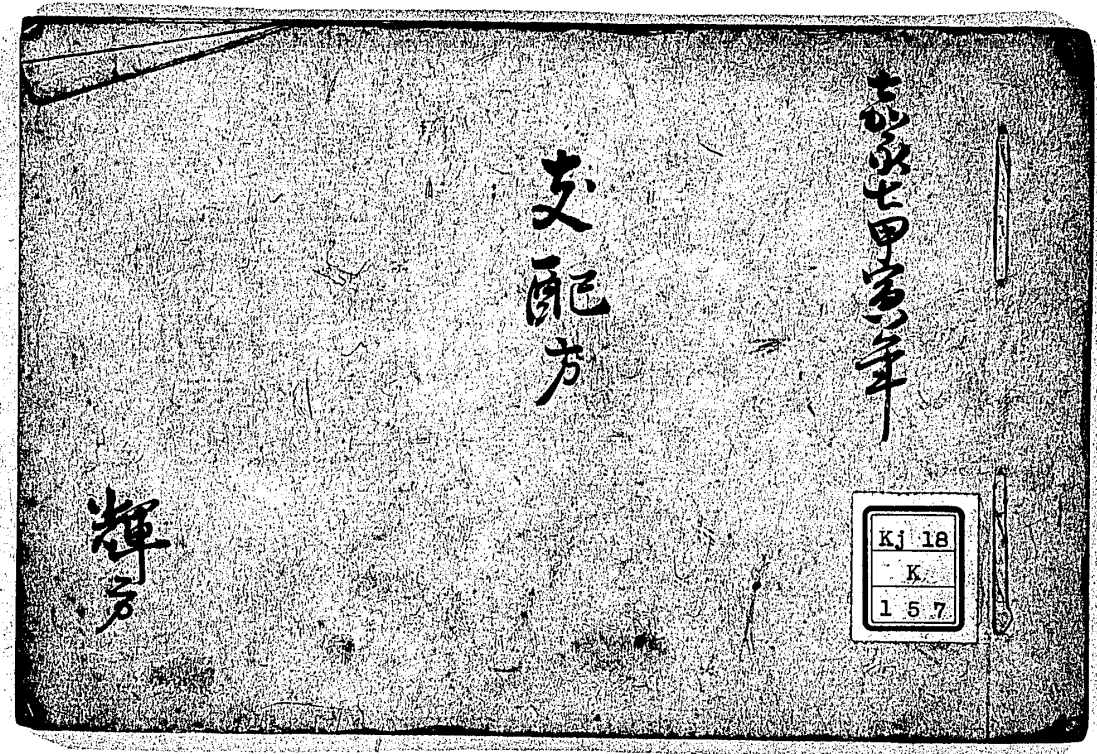 嘉永七甲寅年
支配方
輝方
Kj 18
K
157